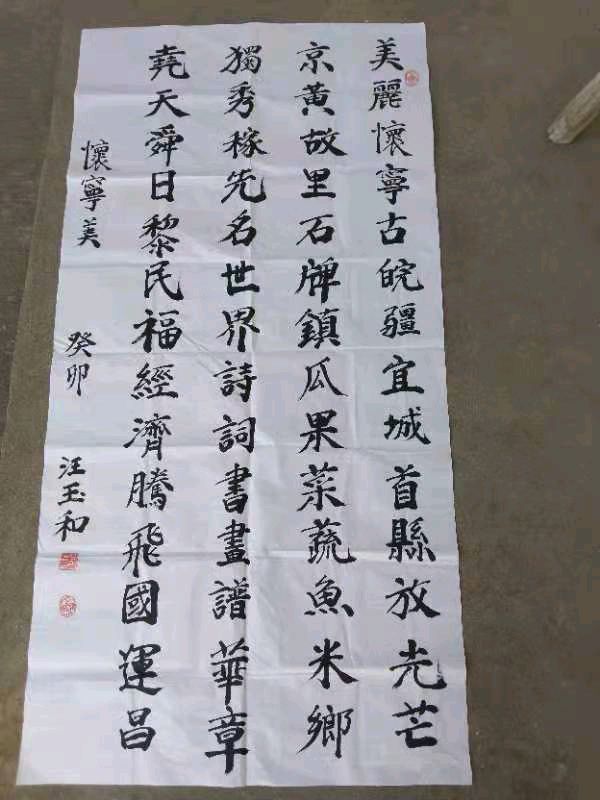 美麗懷寧古皖疆宜城首縣放光芒
京黃故里石牌鎮瓜果菜蔬魚米鄉
獨秀稼先名世界詩詞書畫譜華章
堯天舜日黎民福經濟騰飛國運昌
懷寧美
癸卯
汪玉和